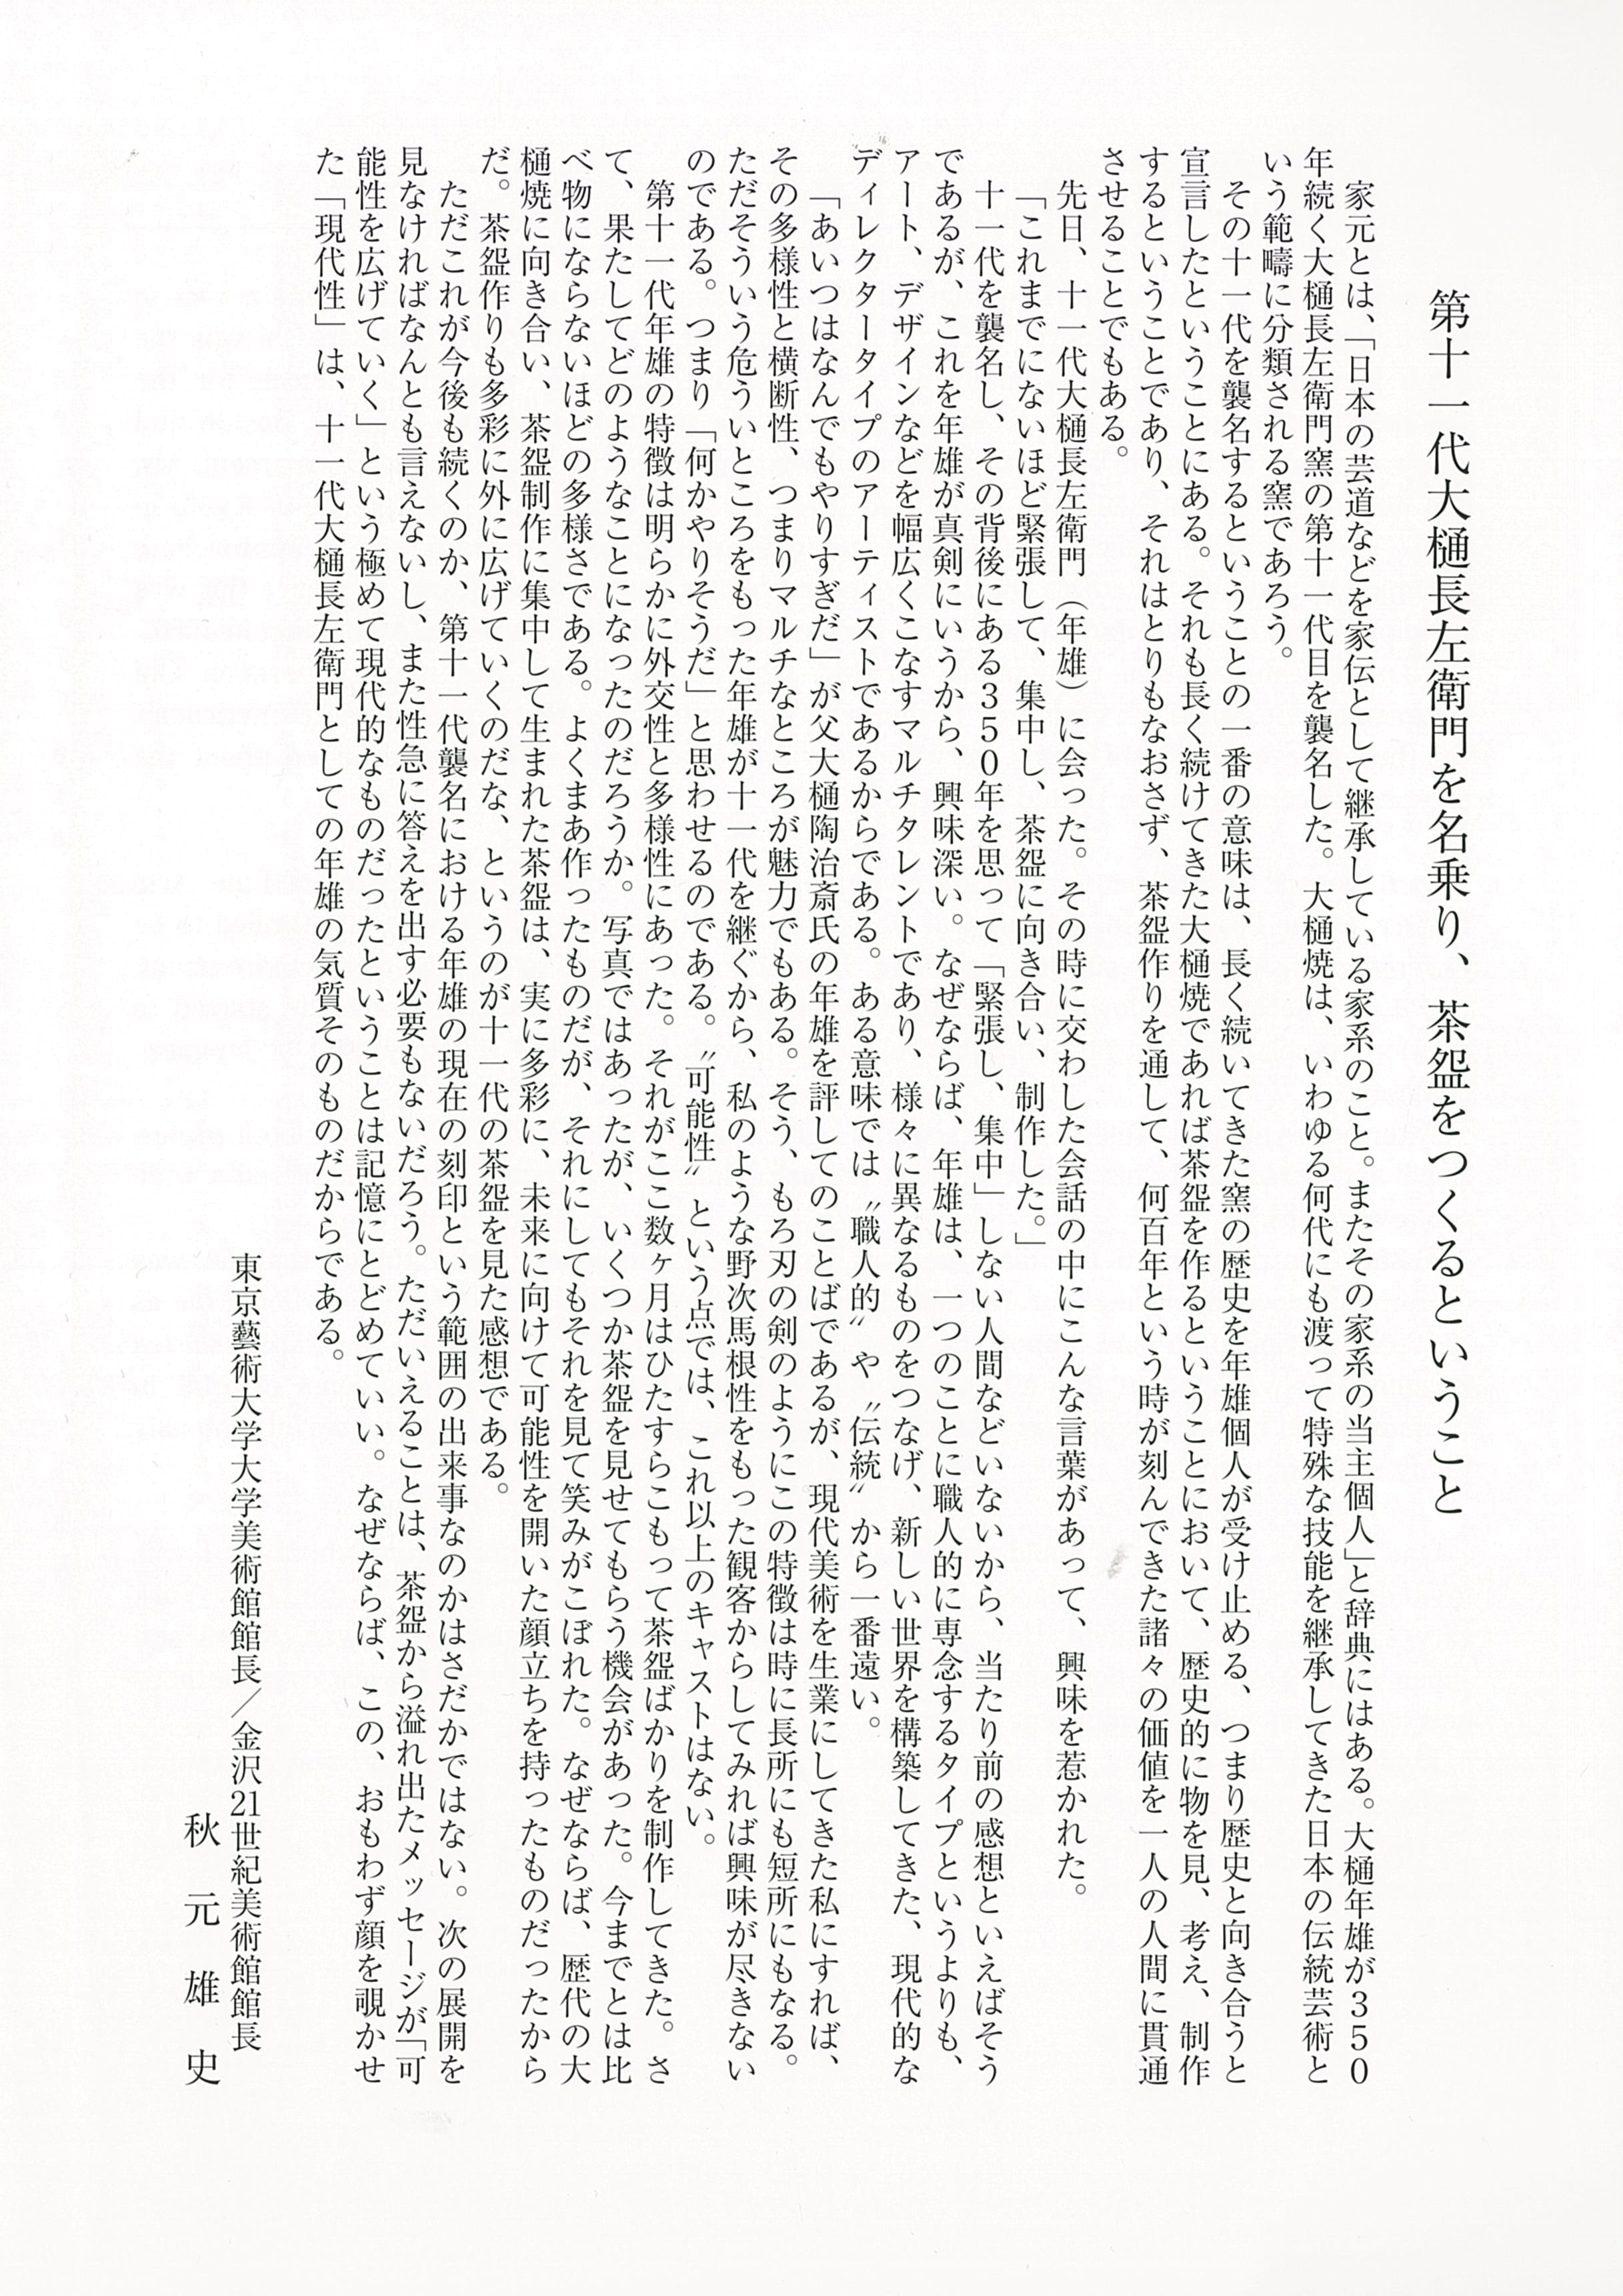 第十一代大樋長左衛門を名乗り、茶盌をつくるということ
家元とは、「日本の芸道などを家伝として継承している家系のこと。またその家系の当主個人」と辞典にはある。大樋年雄が350
年続く大樋長左衛門窯の第十一代目を襲名した。大樋焼は、いわゆる何代にも渡って特殊な技能を継承してきた日本の伝統芸術と
いう範疇に分類される窯であろう。
その十一代を襲名するということの一番の意味は、長く続いてきた窯の歴史を年雄個人が受け止める、つまり歴史と向き合うと
宣言したということにある。それも長く続けてきた大樋焼であれば茶盌を作るということにおいて、歴史的に物を見、考え、制作
するということであり、それはとりもなおさず、茶盌作りを通して、何百年という時が刻んできた諸々の価値を一人の人間に貫通
させることでもある。
先日、十一代大樋長左衛門（年雄）に会った。その時に交わした会話の中にこんな言葉があって、興味を惹かれた。
「これまでにないほど緊張して、集中し、茶盌に向き合い、制作した。」
十一代を襲名し、その背後にある350年を思って「緊張し、集中」しない人間などいないから、当たり前の感想といえばそう
であるが、これを年雄が真剣にいうから、興味深い。なぜならば、年雄は、一つのことに職人的に専念するタイプというよりも、
アート、デザインなどを幅広くこなすマルチタレントであり、様々に異なるものをつなげ、新しい世界を構築してきた、現代的な
ディレクタータイプのアーティストであるからである。ある意味では〝職人的〟や〝伝統〟から一番遠い。
「あいつはなんでもやりすぎだ」が父大樋陶治斎氏の年雄を評してのことばであるが、現代美術を生業にしてきた私にすれば、
その多様性と横断性、つまりマルチなところが魅力でもある。そう、もろ刃の剣のようにこの特徴は時に長所にも短所にもなる。
ただそういう危ういところをもった年雄が十一代を継ぐから、私のような野次馬根性をもった観客からしてみれば興味が尽きない
のである。つまり「何かやりそうだ」と思わせるのである。〝可能性〟という点では、これ以上のキャストはない。
第十一代年雄の特徴は明らかに外交性と多様性にあった。それがここ数ヶ月はひたすらこもって茶盌ばかりを制作してきた。さ
て、果たしてどのようなことになったのだろうか。写真ではあったが、いくつか茶盌を見せてもらう機会があった。今までとは比
べ物にならないほどの多様さである。よくまあ作ったものだが、それにしてもそれを見て笑みがこぼれた。なぜならば、歴代の大
樋焼に向き合い、茶盌制作に集中して生まれた茶盌は、実に多彩に、未来に向けて可能性を開いた顔立ちを持ったものだったから
だ。茶盌作りも多彩に外に広げていくのだな、というのが十一代の茶盌を見た感想である。
ただこれが今後も続くのか、第十一代襲名における年雄の現在の刻印という範囲の出来事なのかはさだかではない。次の展開を
見なければなんとも言えないし、また性急に答えを出す必要もないだろう。ただいえることは、茶盌から溢れ出たメッセージが「可
能性を広げていく」という極めて現代的なものだったということは記憶にとどめていい。なぜならば、この、おもわず顔を覗かせ
た「現代性」は、十一代大樋長左衛門としての年雄の気質そのものだからである。
東京藝術大学大学美術館館長／金沢21世紀美術館館長
秋元雄史